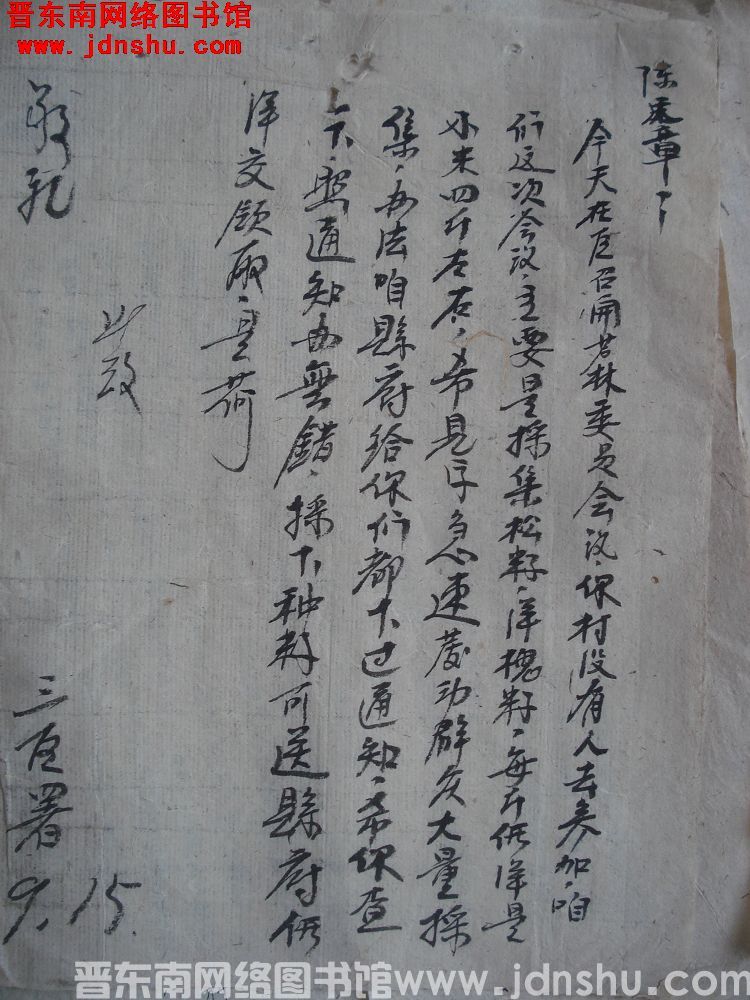 晋东南网络图书馆
www.jdnshu.com
陈 章
今天在区召开若林委员会议、你村没有人去参加、咱
们这次会议、主要是採集松籽、洋槐籽、每斤供洋是
小米四斤左右、希見字急速發动群众大量採
集、办法咱縣府给你们都下过通知、希你查
一下、照通知办無錯、採下种籽可送縣府供
洋交领取、是荷
此致
敬礼
三区署
9.15.
晋东南网络图书馆www.jdnshu.com